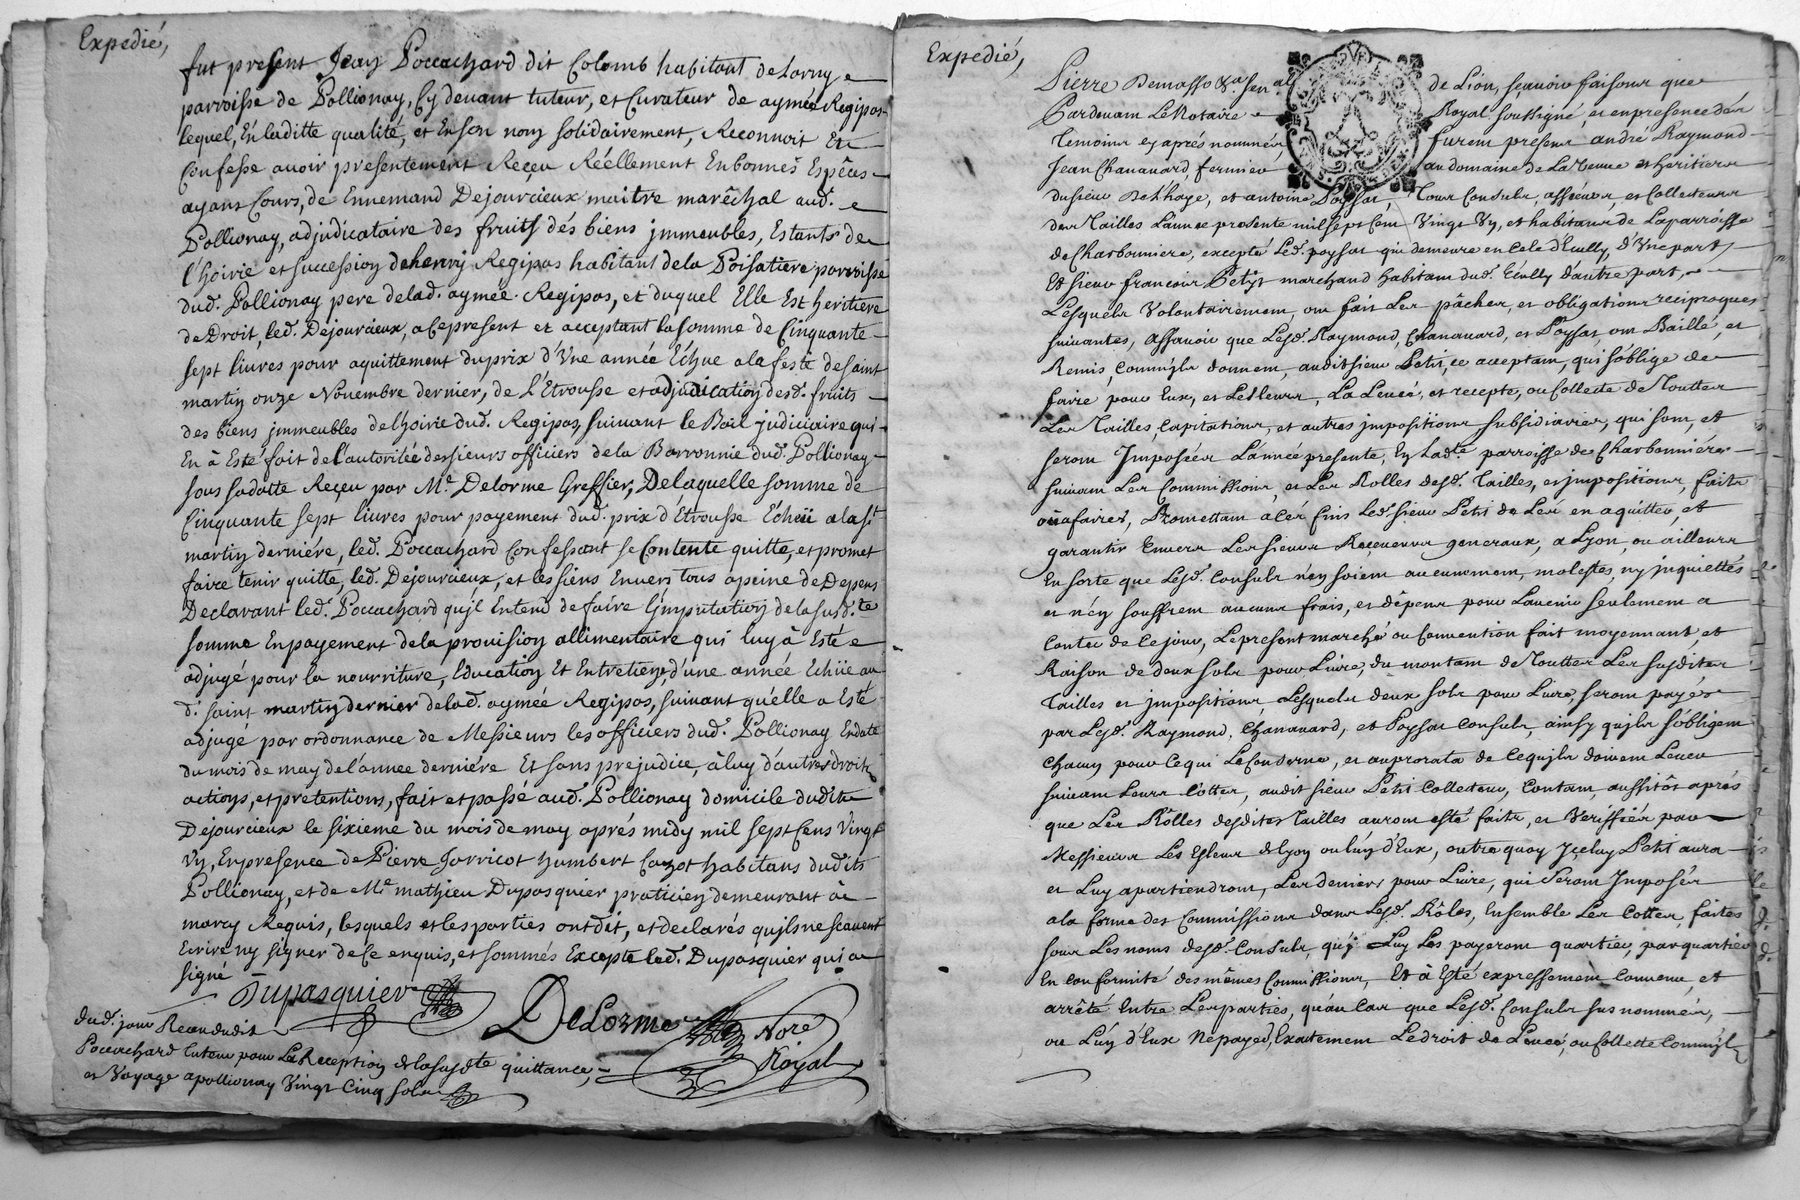 Expedié,
fut present Jean Poccachard dit Colomb habitant de Lorny
parroisse de Pollionay, Cy devant tuteur, et Curateur de aymée Regipas
lequel, En laditte qualité, et En son nom solidairement, Reconnoit Et
Confesse avoir presentement Reçeu Réellement En bonnes Espêces
ayant Cours, de Ennemand Dejourcieux maitre marêchal aud.
Pollionay, adjudicataire des fruits dés biens jmmeubles, Estants de
l'hoirie et succession de henry Regipas habitant de la Poisatiere parroisse
dud. Pollionay pere de lad. aymée Regipas, et duquel Elle Est heritiere
de Droit, led. Dejourcieux, a Ce present et acceptant la somme de Cinquante
sept livres pour aquittement du prix d'Vne année Echue a la feste de saint
martin onze Novembre dernier, de l'Etrousse et adjudication desd. fruits
des biens jmmeubles de l'hoirie dud. Regipas, suivant le Bail judiciaire qui
En à Esté fait de l'autoritée des sieurs officiers de la Barronnie dud. Pollionay
sous sa datte Reçeu par Me. Delorme Greffier, De laquelle somme de
Cinquante sept livres pour payement dud. prix d'Etrousse Echeü a la St
martin derniére, led. Poccachard Confessant se Contente quitte, et promet
faire tenir quitte, led. Dejourcieux, et les siens Envers tous a peine de Depens
Declarant led. Poccachard qu'jl Entend de faire l'jmputation de la susd.te
somme En payement de la provision allimentaire qui luy à Esté
adjugé pour la nourriture, Education Et Entretien d'une année Echüe au
d. saint martin dernier de lad. aymée Regipas, suivant qu'elle a Esté
adjugé par ordonnance de Messieurs les officiers dud. Pollionay En date
du mois de may de l'annee derniére Et sans prejudice, à luy d'autres droits
actions, et pretentions, fait et passé aud. Pollionay domicile dudit
Dejourcieux le sixieme du mois de may aprés midy mil sept Cens Vingt
Vn, En presence de Pierre Jarricot humbert Cazot habitans dudit
Pollionay, et de Me mathieu Dupasquier praticien demeurant à
marcy Requis, lesquels et les parties ont dit, et declarés qu'jls ne sçavent
Ecrire ny signer de Ce enquis, et sommés Excepté led. Dupasquier qui a
signé
Dupasquier
DeLorme Nore
Royal
dud. jour Receu dudit
Poccachard tuteur pour La Reception de la susd.te quittance,
et Voyage a pollionay Vingt Cinq sols
Expedié,
Pierre Demasso &a. sen.al de Lion, sçavoir faisons que
Pardevant Le Notaire Royal soussigné et en presence des
Temoins cy aprés nommés, furent présens andré Raymond
Jean Chanavard, fermier au domaine de La Veuve et heritiers
du sieur Delhaye, et antoine Poysat, Tous Consuls, asséeurs, et Collecteurs
des Tailles L'année presente mil sept Cent Vingt Vn, et habitans de La parroisse
de Charbonniere, excepté Led. poysat qui demeure en Cele d'Ecully, d'Vne part,
Et sieur françois Petit marchand habitant dud. Ecully d'autre part,
Lesquels Volontairement, ont fait Les pâches, et obligations reciproques
suivantes, Assavoir que Lesd. Raymond, Chanavard, et Poysat, ont Baillé, et
Remis, Comm'jls donnent, audit sieur Petit, ce acceptant, qui s'oblige de
faire pour Eux, et Les Leurs, La Levée, et recepte, ou Collecte de Touttes
Les Tailles, Capitations, et autres jmpositions subsidiaires, qui sont, et
seront Jmposées L'année presente, En Lad.te parroisse de Charbonniéres
suivant Les Commissions, et Les Rolles desd. Tailles, et jmpositions, faits
ou a faires, Promettant a Cés fins Led. sieur Petit de Les en aquitter, et
garantir Envers Les sieurs Reçeveurs generaux, a Lyon, ou ailleurs
En sorte que Lesd. Consuls n'en soient aucunement, molestés, ny jnquiettés
et n'en souffrent aucuns frais, et dêpens pour L'avenir seulement a
Conter de Ce jour, Le present marché ou Convention fait moyennant, et
Raison de deux sols pour Livre, du montant de Touttes Les susdites
Tailles et jmpositions, Lesquels deux sols pour Livre, seront payés
par Lesd. Raymond, Chanavard, et Poysat Consuls, ainsy qu'jls s'obligent
Chacun pour Ce qui Le Conserne, et au prorata de Ce qu'jls doivent Lever
suivant Leurs Cottes, audit sieur Petit Collecteur, Contant, aussitôt aprés
que Les Rôlles desdites Tailles auront esté faits, et Vériffiés par
Messieurs Les Esleus de Lyon ou l'un d'Eux, outre quoy Jçeluy Petit aura
et Luy apartiendront, Les deniers pour Livre, qui Seront Jmposés
a la forme des Commissions dans Lesd. Rôles, Ensemble Les Cottes, faites
sous Les noms desd. Consuls, qu'jls Luy Les payeront quartier, par quartier
En Conformité des mêmes Commissions, Et à Esté expressement Convenu, et
arrêté Entre Les parties, qu'au Cas que Lesd. Consuls sus nommés,
ou L'un d'Eux Ne payed, Exactement Le droit de Levée, ou Collecte Comm'jl